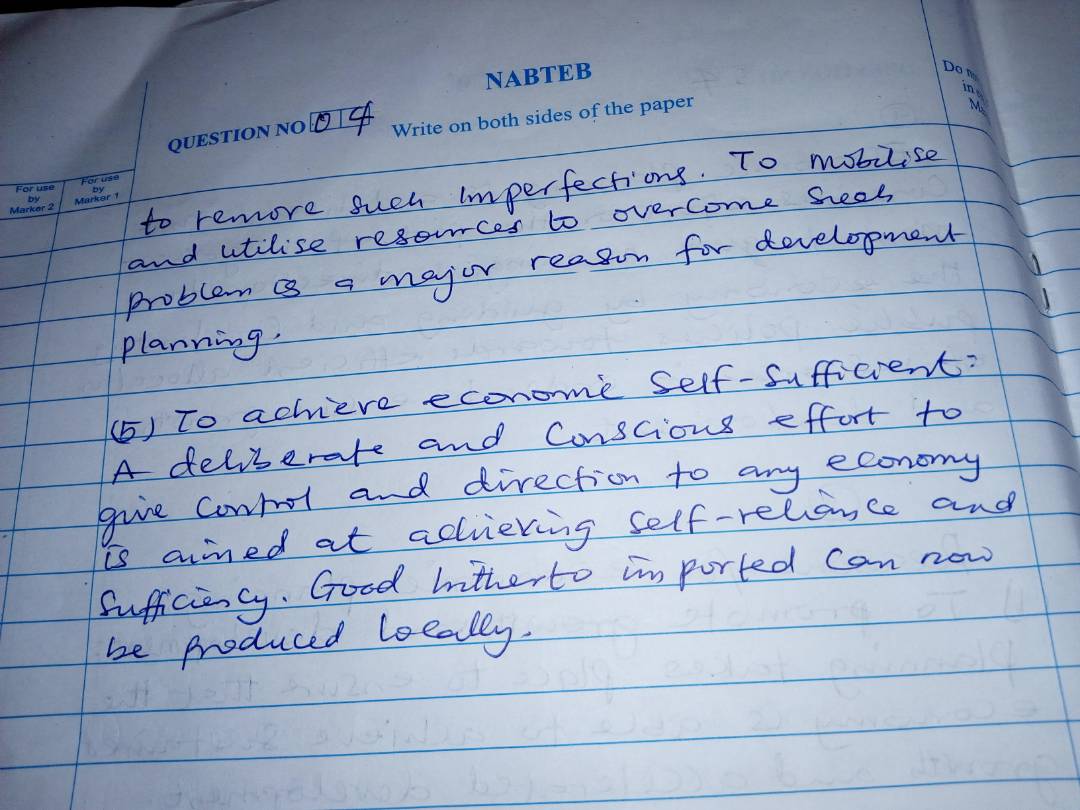 NABTEB
QUESTION NO 04 Write on both sides of the paper
Do
in
For use
by
Marker 2
For use
by
Marker 1
to remove such imperfections. To mobilise
and utilise resources to overcome such
problem is a major reason for development
planning.
(5) To achieve economic Self-Sufficient:
A deliberate and Conscious effort to
give Control and direction to any economy
is aimed at achieving self-reliance and
Sufficiency. Good hitherto imported Can now
be produced locally.